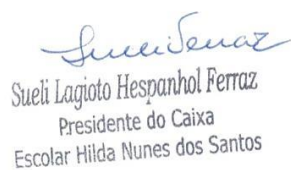 Sueli Ferraz
Sueli Lagioto Hespanhol Ferraz
Presidente do Caixa
Escolar Hilda Nunes dos Santos